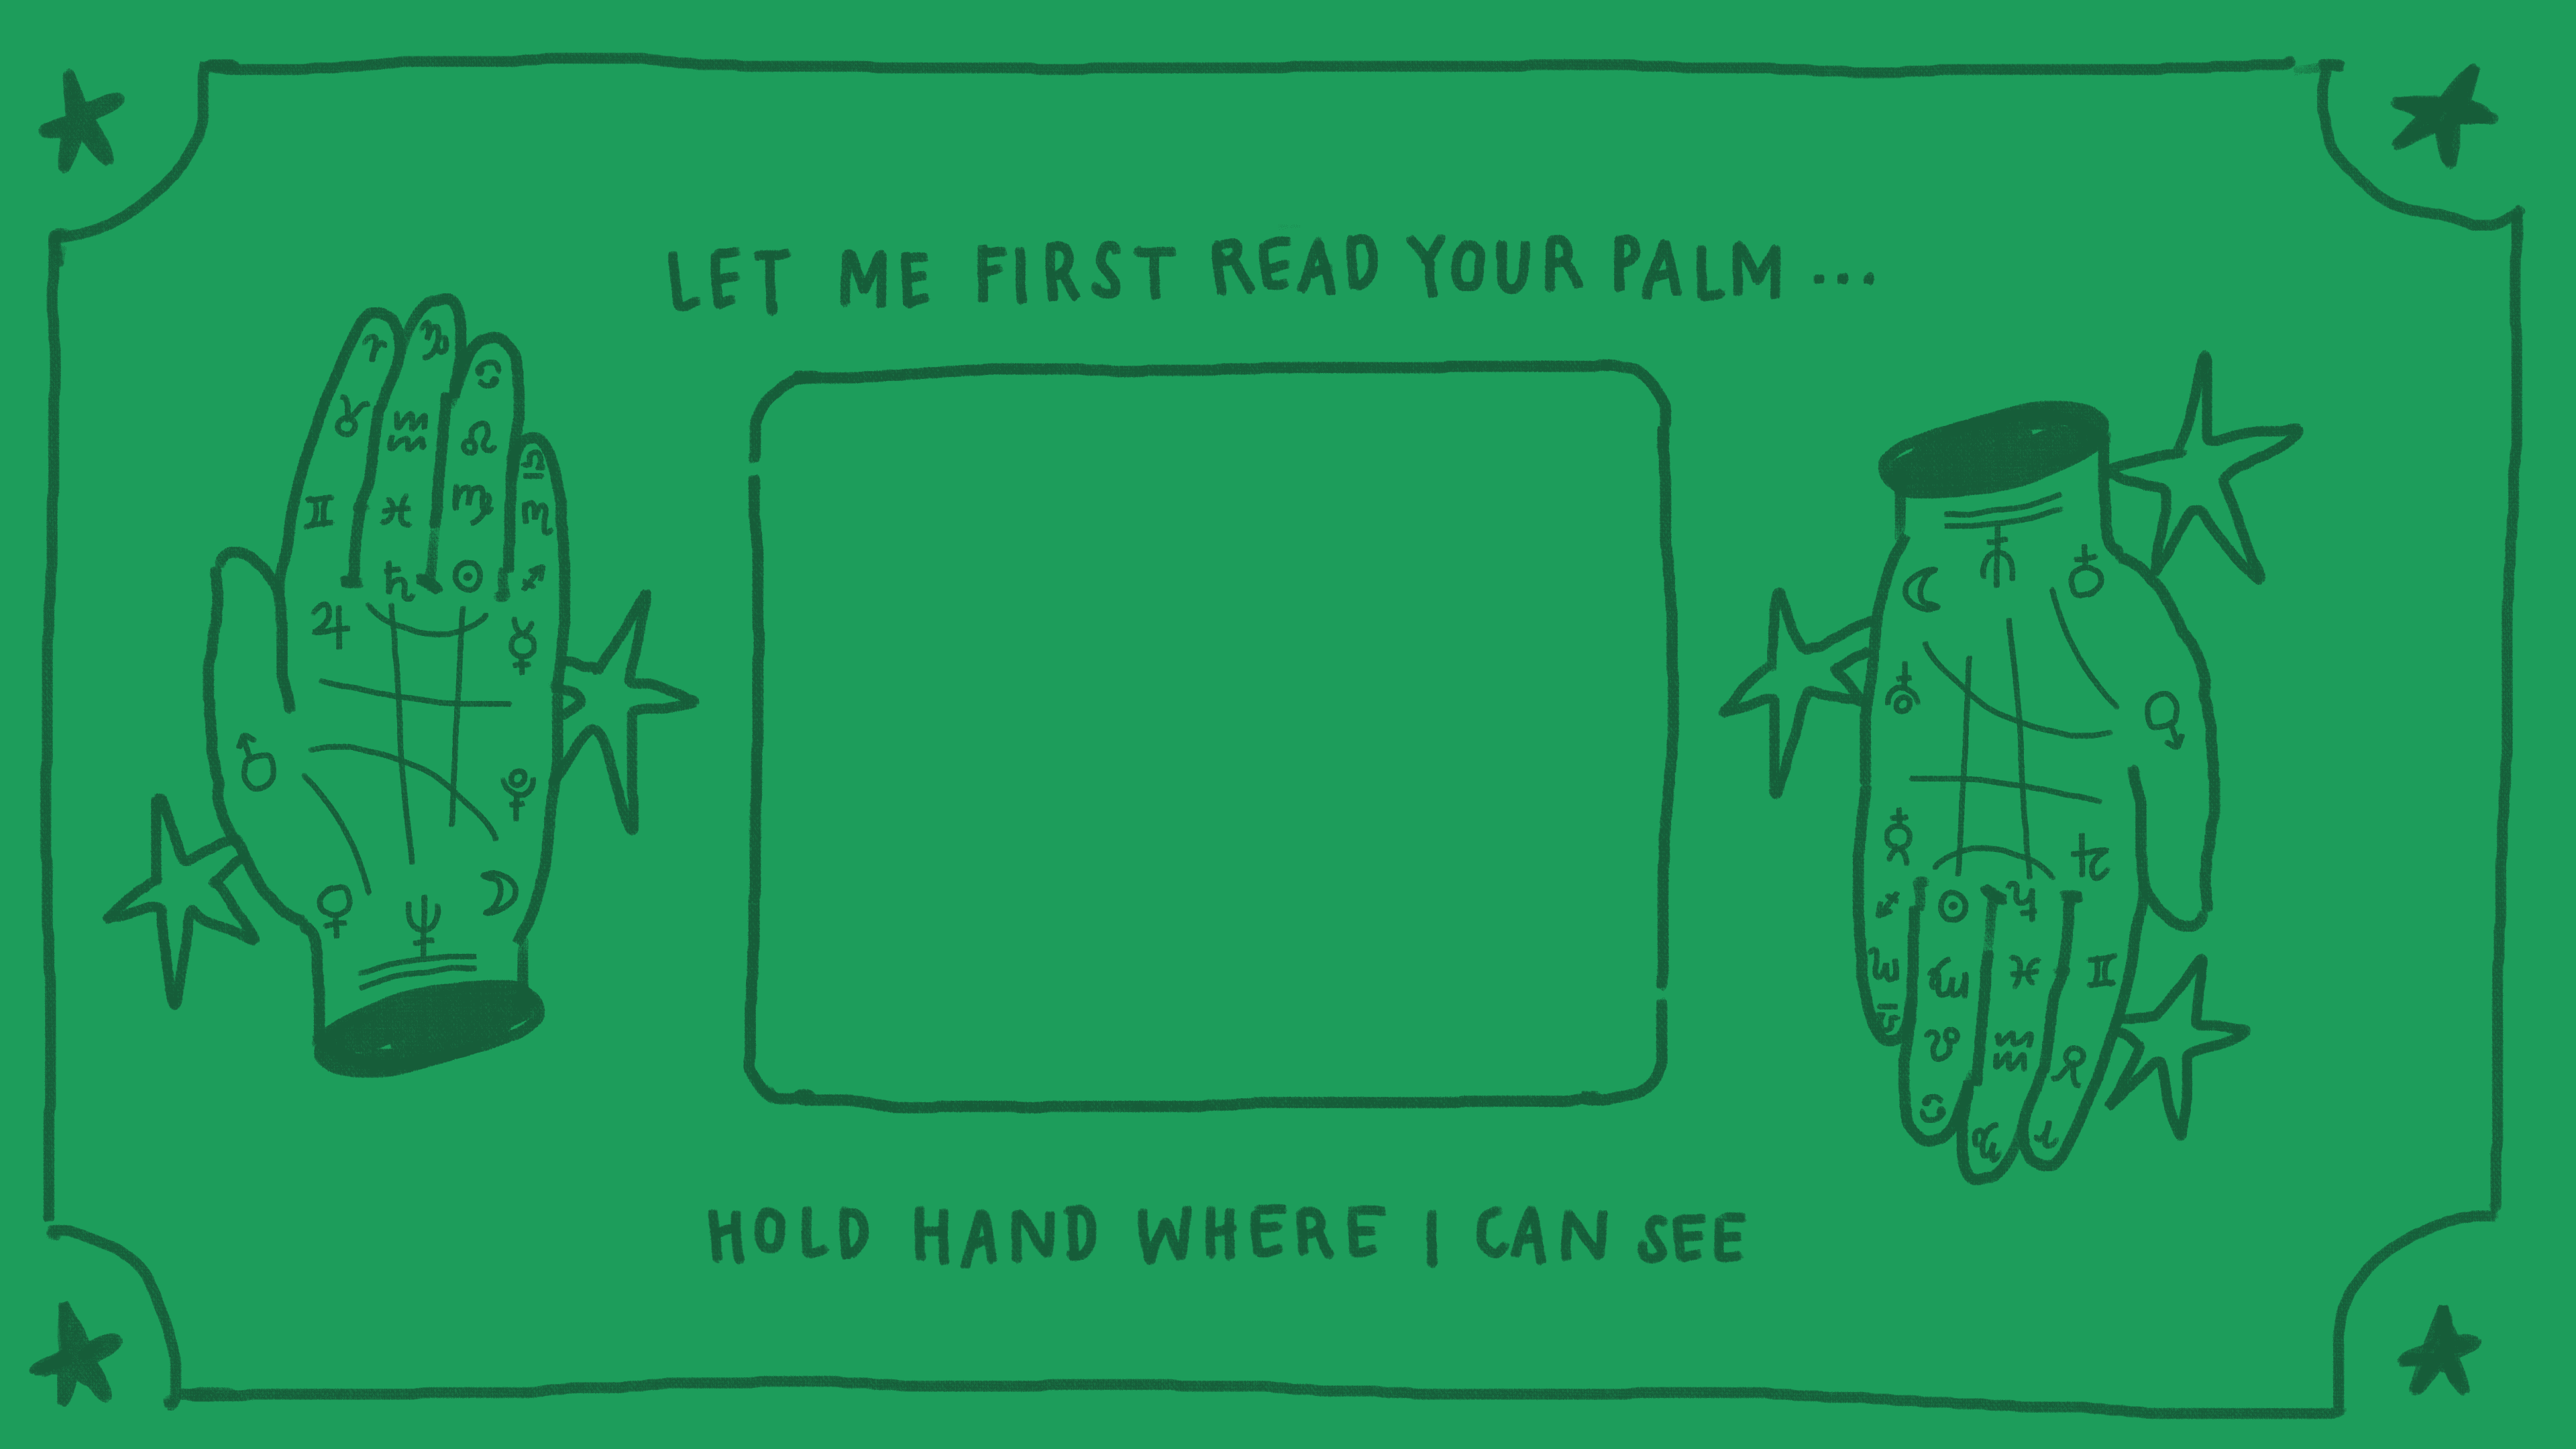 LET ME FIRST READ YOUR PALM ...
HOLD HAND WHERE I CAN SEE